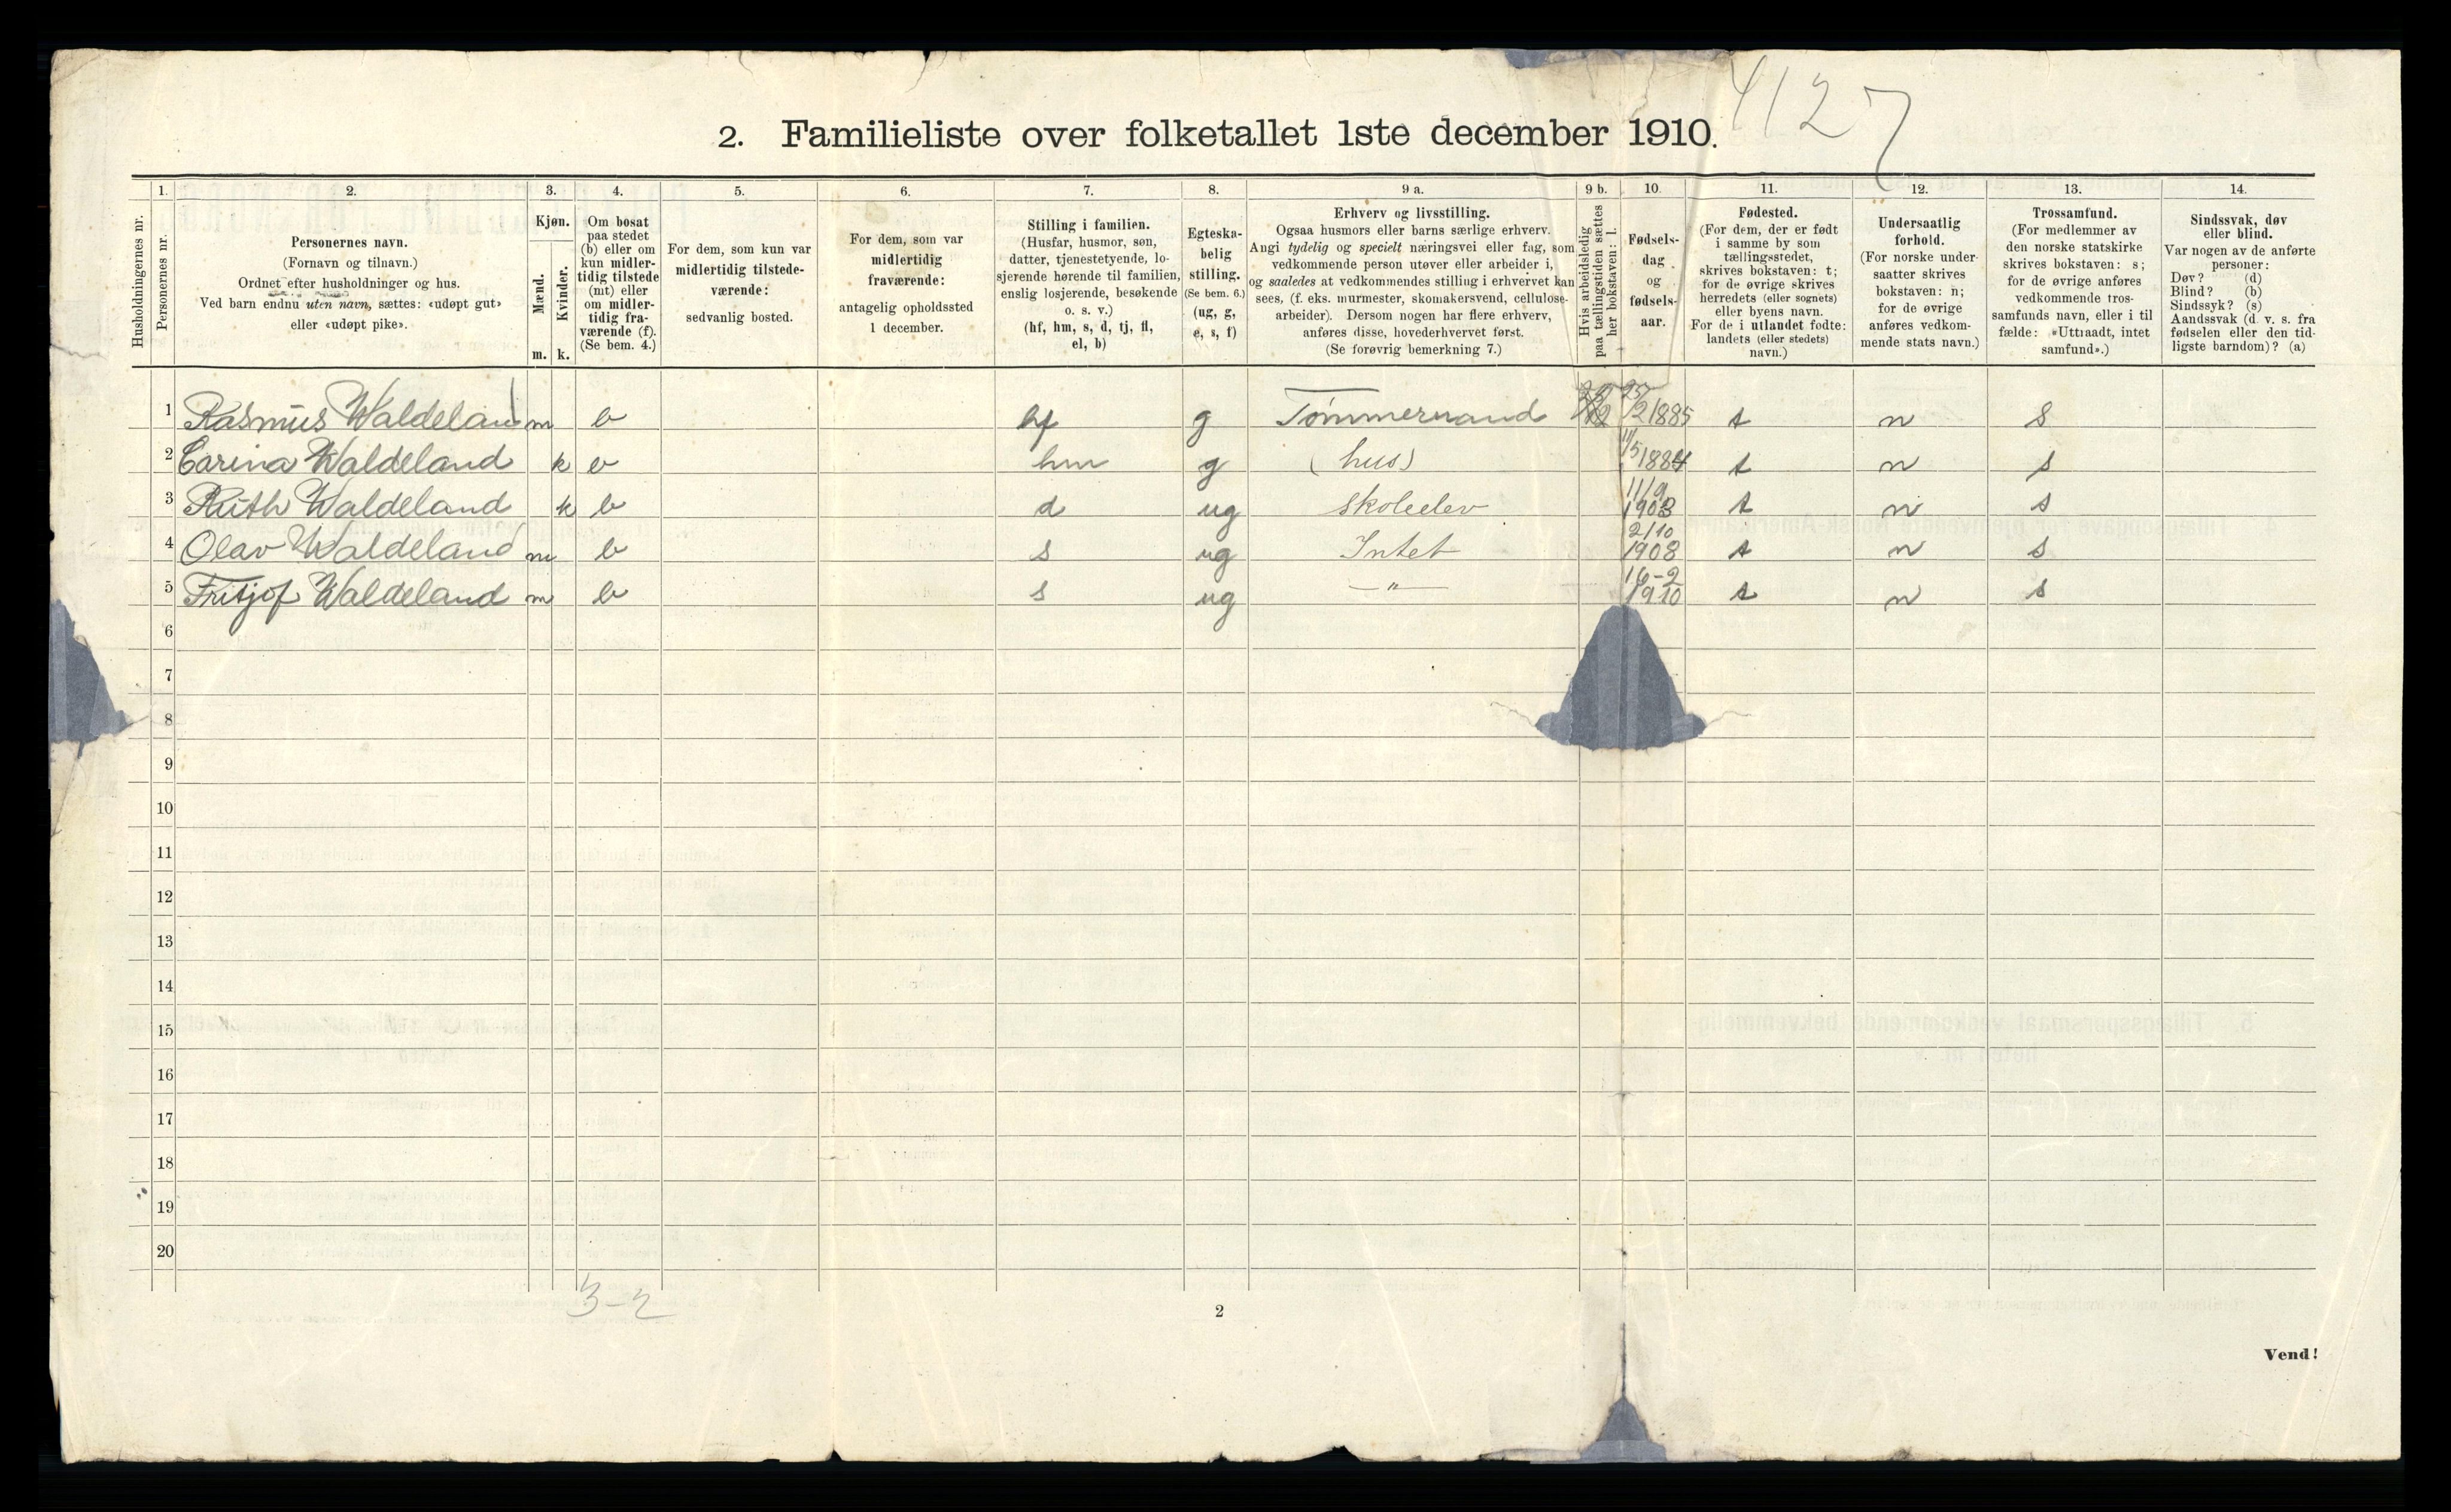 4127
2. Familieliste over folketallet 1ste december 1910.
1. 2. 3. 4. 5. 6. 7. 8. 9 a. 9 b. 10. 11. 12. 13. 14.
Husholdningernes nr.
Personernes nr.
Personernes navn.
(Fornavn og tilnavn.)
Ordnet efter husholdninger og hus.
Ved barn endnu uten navn, sættes: «udøpt gut»
eller «udøpt pike».
Kjøn.
Mænd.
Kvinder.
m. k.
Om bosat
paa stedet
(b) eller om
kun midler-
tidig tilstede
(mt) eller
om midler-
tidig fra-
værende (f).
(Se bem. 4.)
For dem, som kun var
midlertidig tilstede-
værende:
sedvanlig bosted.
For dem, som var
midlertidig
fraværende:
antagelig opholdssted
1 december.
Stilling i familien.
(Husfar, husmor, søn,
datter, tjenestetyende, lo-
sjerende hørende til familien,
enslig losjerende, besøkende
o. s. v.)
(hf, hm, s, d, tj, fl,
el, b)
Egteska-
belig
stilling.
(Se bem. 6.)
(ug, g,
e, s, f)
Erhverv og livsstilling.
Ogsaa husmors eller barns særlige erhverv.
Angi tydelig og specielt næringsvei eller fag, som
vedkommende person utøver eller arbeider i,
og saaledes at vedkommendes stilling i erhvervet kan
sees, (f. eks. murmester, skomakersvend, cellulose-
arbeider). Dersom nogen har flere erhverv,
anføres disse, hovederhvervet først.
(Se forøvrig bemerkning 7.)
Hvis arbeidsledig
paa tællingstiden sættes
her bokstaven: l.
Fødsels-
dag
og
fødsels-
aar.
Fødested.
(For dem, der er født
i samme by som
tællingsstedet,
skrives bokstaven: t;
for de øvrige skrives
herredets (eller sognets)
eller byens navn.
For de i utlandet fødte:
landets (eller stedets)
navn.)
Undersaatlig
forhold.
(For norske under-
saatter skrives
bokstaven: n;
for de øvrige
anføres vedkom-
mende stats navn.)
Trossamfund.
(For medlemmer av
den norske statskirke
skrives bokstaven: s;
for de øvrige anføres
vedkommende tros-
samfunds navn, eller i til
fælde: «Uttraadt, intet
samfund».)
Sindssvak, døv
eller blind.
Var nogen av de anførte
personer:
Døv? (d)
Blind? (b)
Sindssyk? (s)
Aandssvak (d. v. s. fra
fødselen eller den tid-
ligste barndom)? (a)
1 Rasmus Waldeland m b hf g Tømmermand 25/2 1885 t n s
2 Carina Waldeland k b hm g (hus) 11/5 1884 t n s
3 Ruth Waldeland k b d ug skoleelev 11/9 1903 t n s
4 Olav Waldeland m b s ug Intet 2/10 1908 t n s
5 Fritjof Waldeland m b s ug —"— 16-2 1910 t n s
6
7
8
9
10
11
12
13
14
15
16
17
18
19
20
3-2
2
Vend!